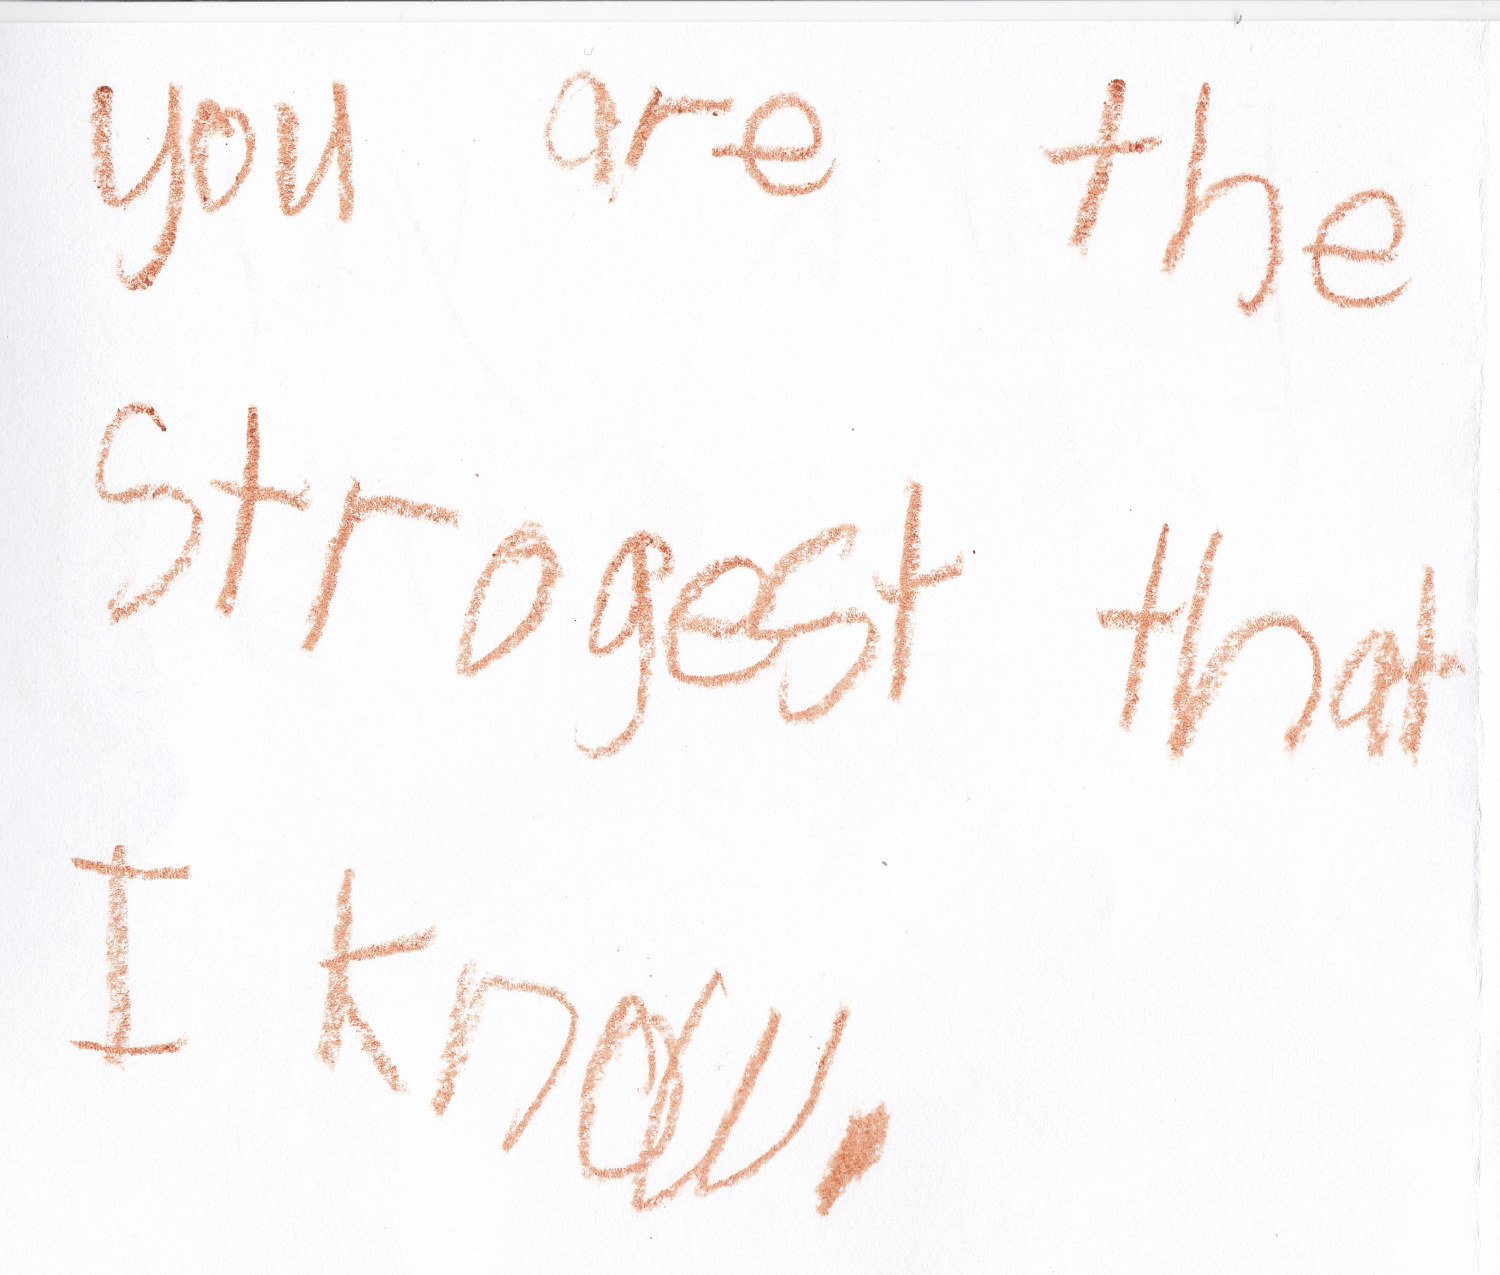 you are the
Strogest that
I know.